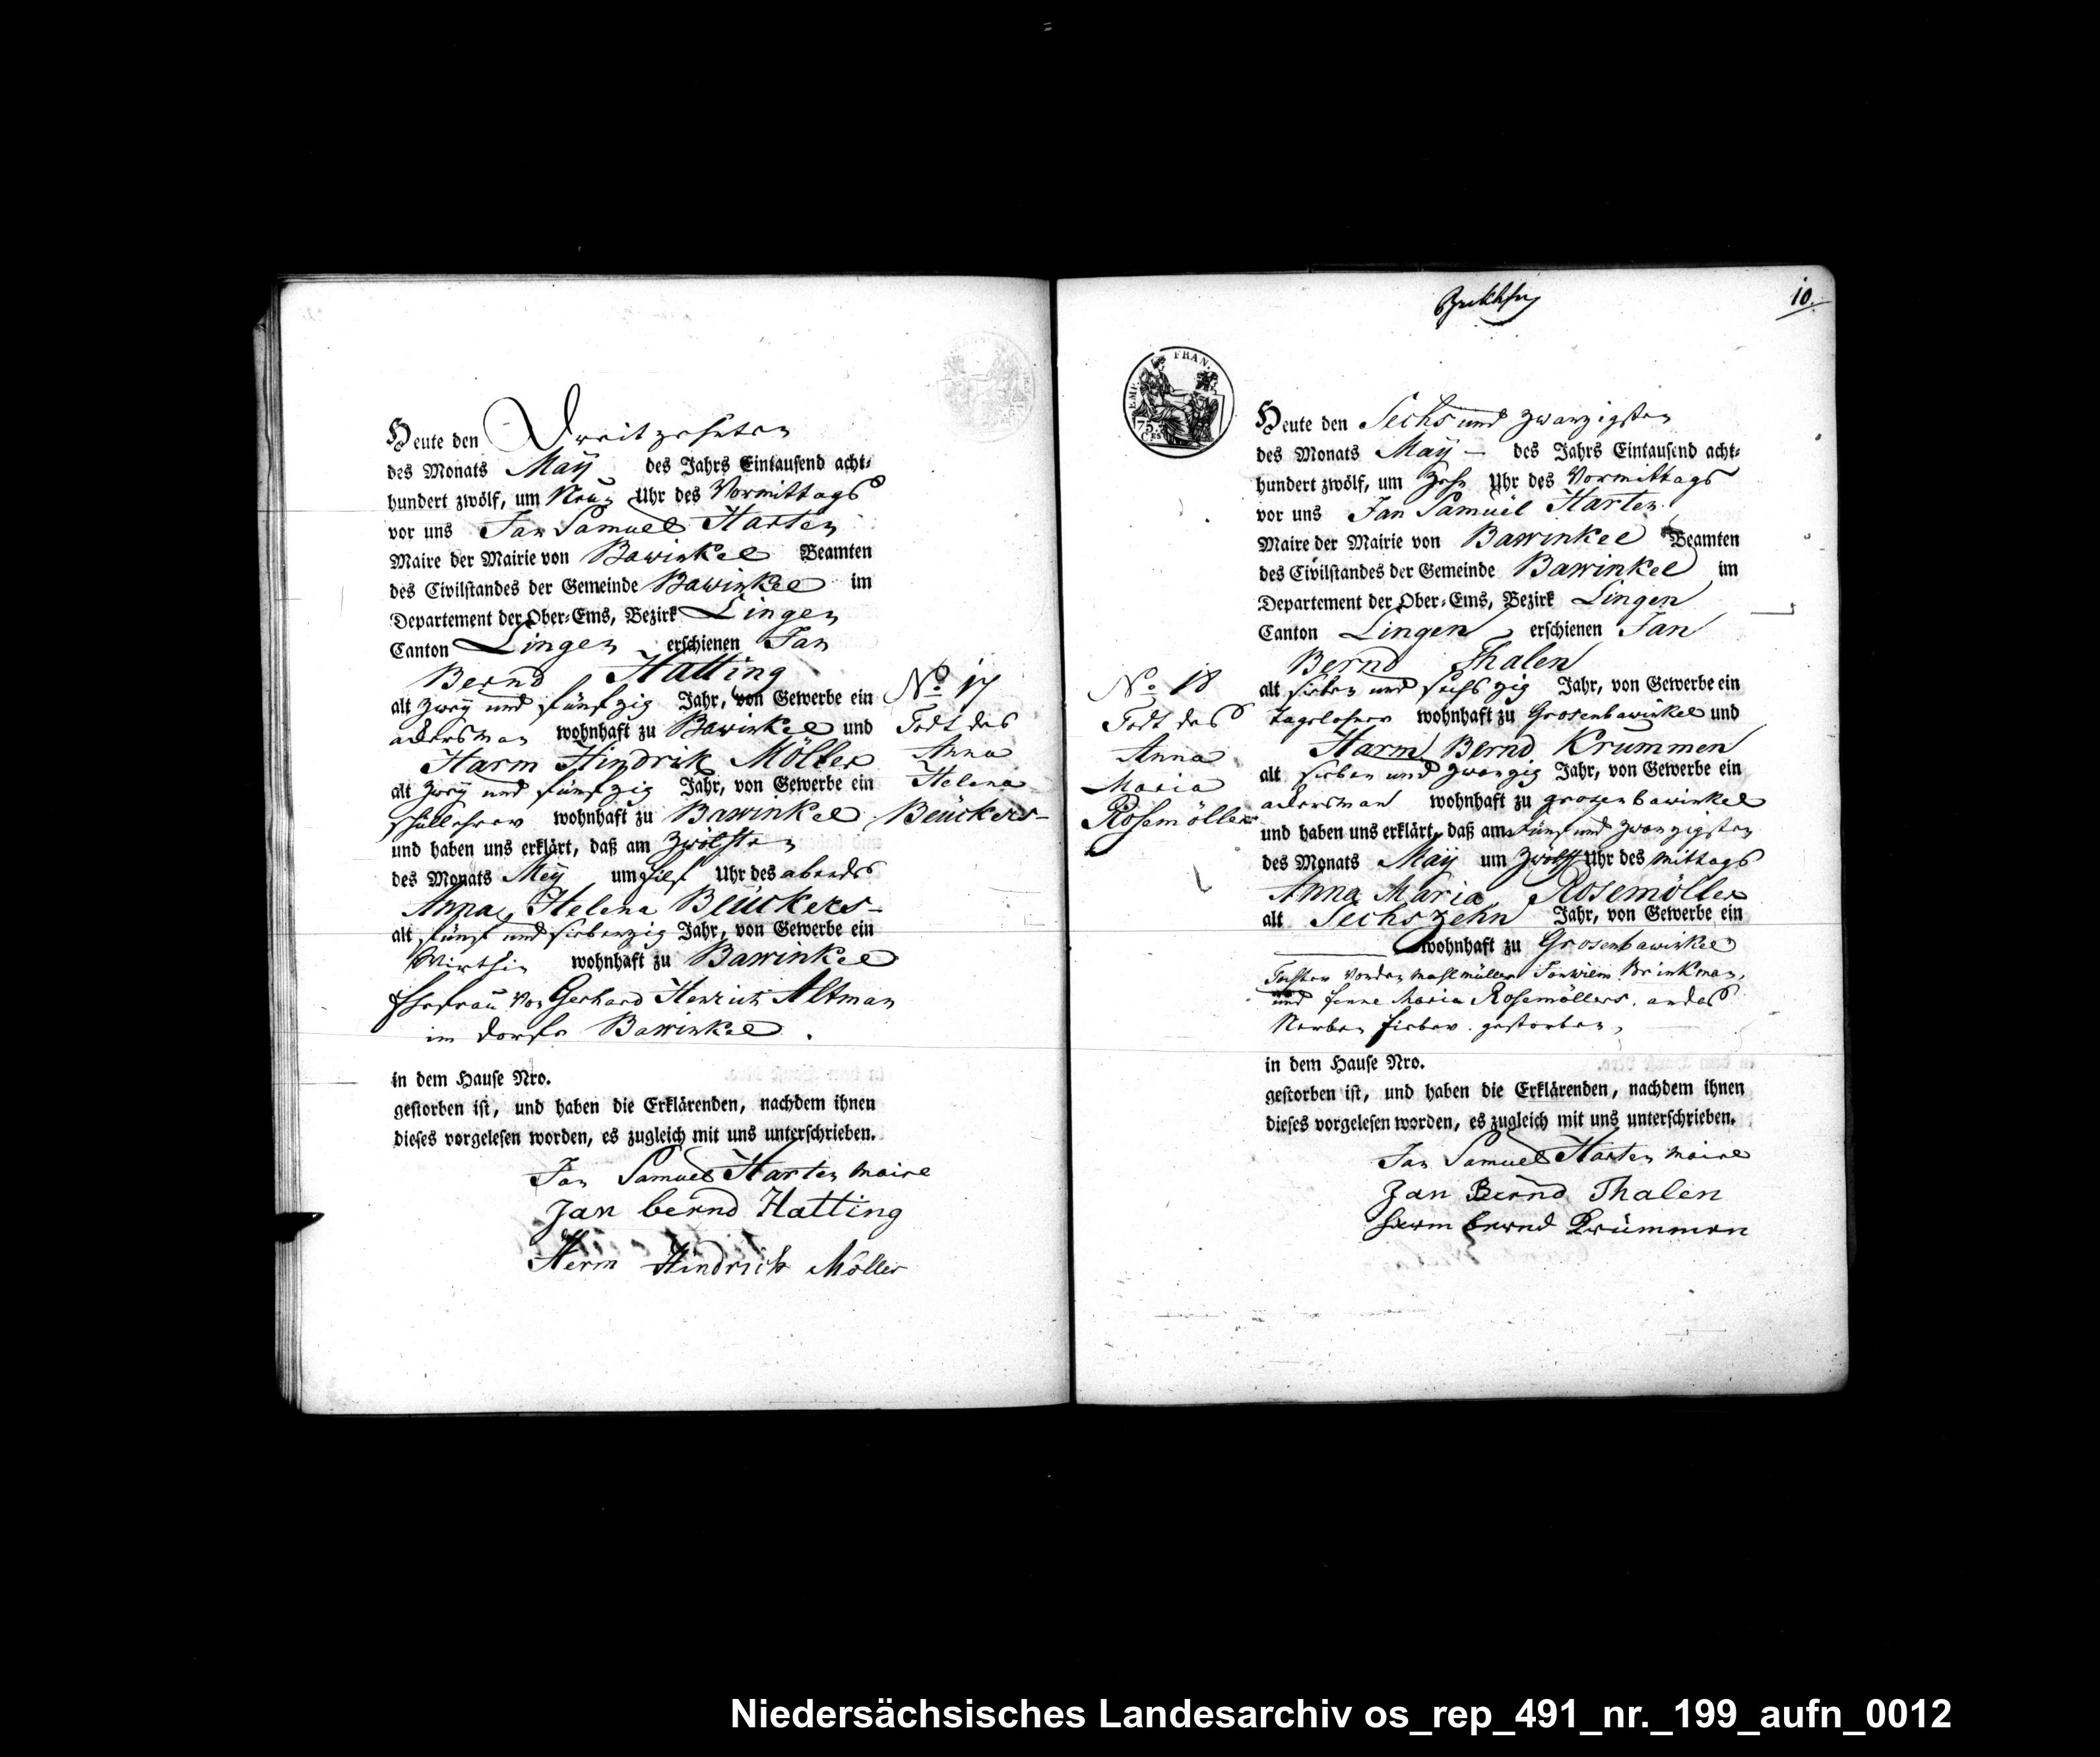 Heute den Dreitzehnten
des Monats Maÿ des Jahrs Eintausend acht-
hundert zwölf, um Neun Uhr des Vormittags
vor uns Jan Samuel Harten
Maire der Mairie von Bawinkel Beamten
des Civilstandes der Gemeinde Bawinkel im
Departement der Ober-Ems, Bezirk Lingen
Canton Lingen erschienen Jan
Bernd Hatting
alt zweÿ und fünfzig Jahr, von Gewerbe ein
ackersman wohnhaft zu Bawinkel und
Harm Hindrik Möller
alt zweÿ und fünfzig Jahr, von Gewerbe ein
schullehrer wohnhaft zu Bawinkel
und haben uns erklärt, daß am zwölften
des Monats Meÿ um Uhr des abends
Anna Helena Beückers-
alt fünf und siebenzig Jahr, von Gewerbe ein
Wirthin wohnhaft zu Bawinkel
Ehefrau von Gerhard Henrich Altman
im dorfe Bawinkel.
in dem Hause Nro.
gestorben ist, und haben die Erklärenden, nachdem ihnen
dieses vorgelesen worden, es zugleich mit uns unterschrieben.
Jan Samuel Harten Maire
Jan bernd Hatting
Herm Hindrich Möller
No. 17
Todt des
Anna
Helena
Beückers-
10.
EMP. FRAN.
75.
CES
Heute den Sechs und zwanzigsten
des Monats Maÿ - des Jahrs Eintausend acht-
hundert zwölf, um Zehn Uhr des Vormittags
vor uns Jan Samuël Harten
Maire der Mairie von Bawinkel Beamten
des Civilstandes der Gemeinde Bawinkel im
Departement der Ober-Ems, Bezirk Lingen
Canton Lingen erschienen Jan
Bernd Thalen
alt sieben und sechszig Jahr, von Gewerbe ein
tagelohner wohnhaft zu Grosenbawinkel und
Harm Bernd Krummen
alt sieben und zwanzig Jahr, von Gewerbe ein
ackersman wohnhaft zu grosenbawinkel
und haben uns erklärt, daß am fünf und zwanzigsten
des Monats Maÿ um zwölff Uhr des Mittags
Anna Maria Rosemöller
alt Sechszehn Jahr, von Gewerbe ein
wohnhaft zu Grosenbawinkel
Tochter von den Janwilm Brinkman,
und fenne Maria Rosemöllers. an das
Nerben fieber gestorben,
in dem Hause Nro.
gestorben ist, und haben die Erklärenden, nachdem ihnen
dieses vorgelesen worden, es zugleich mit uns unterschrieben.
Jan Samuel Harten Maire
Jan Bernd Thalen
Harm bernd Krümmen
No. 18
Todt des
Anna
Maria
Rosemöllers
Niedersächsisches Landesarchiv os_rep_491_nr._199_aufn_0012